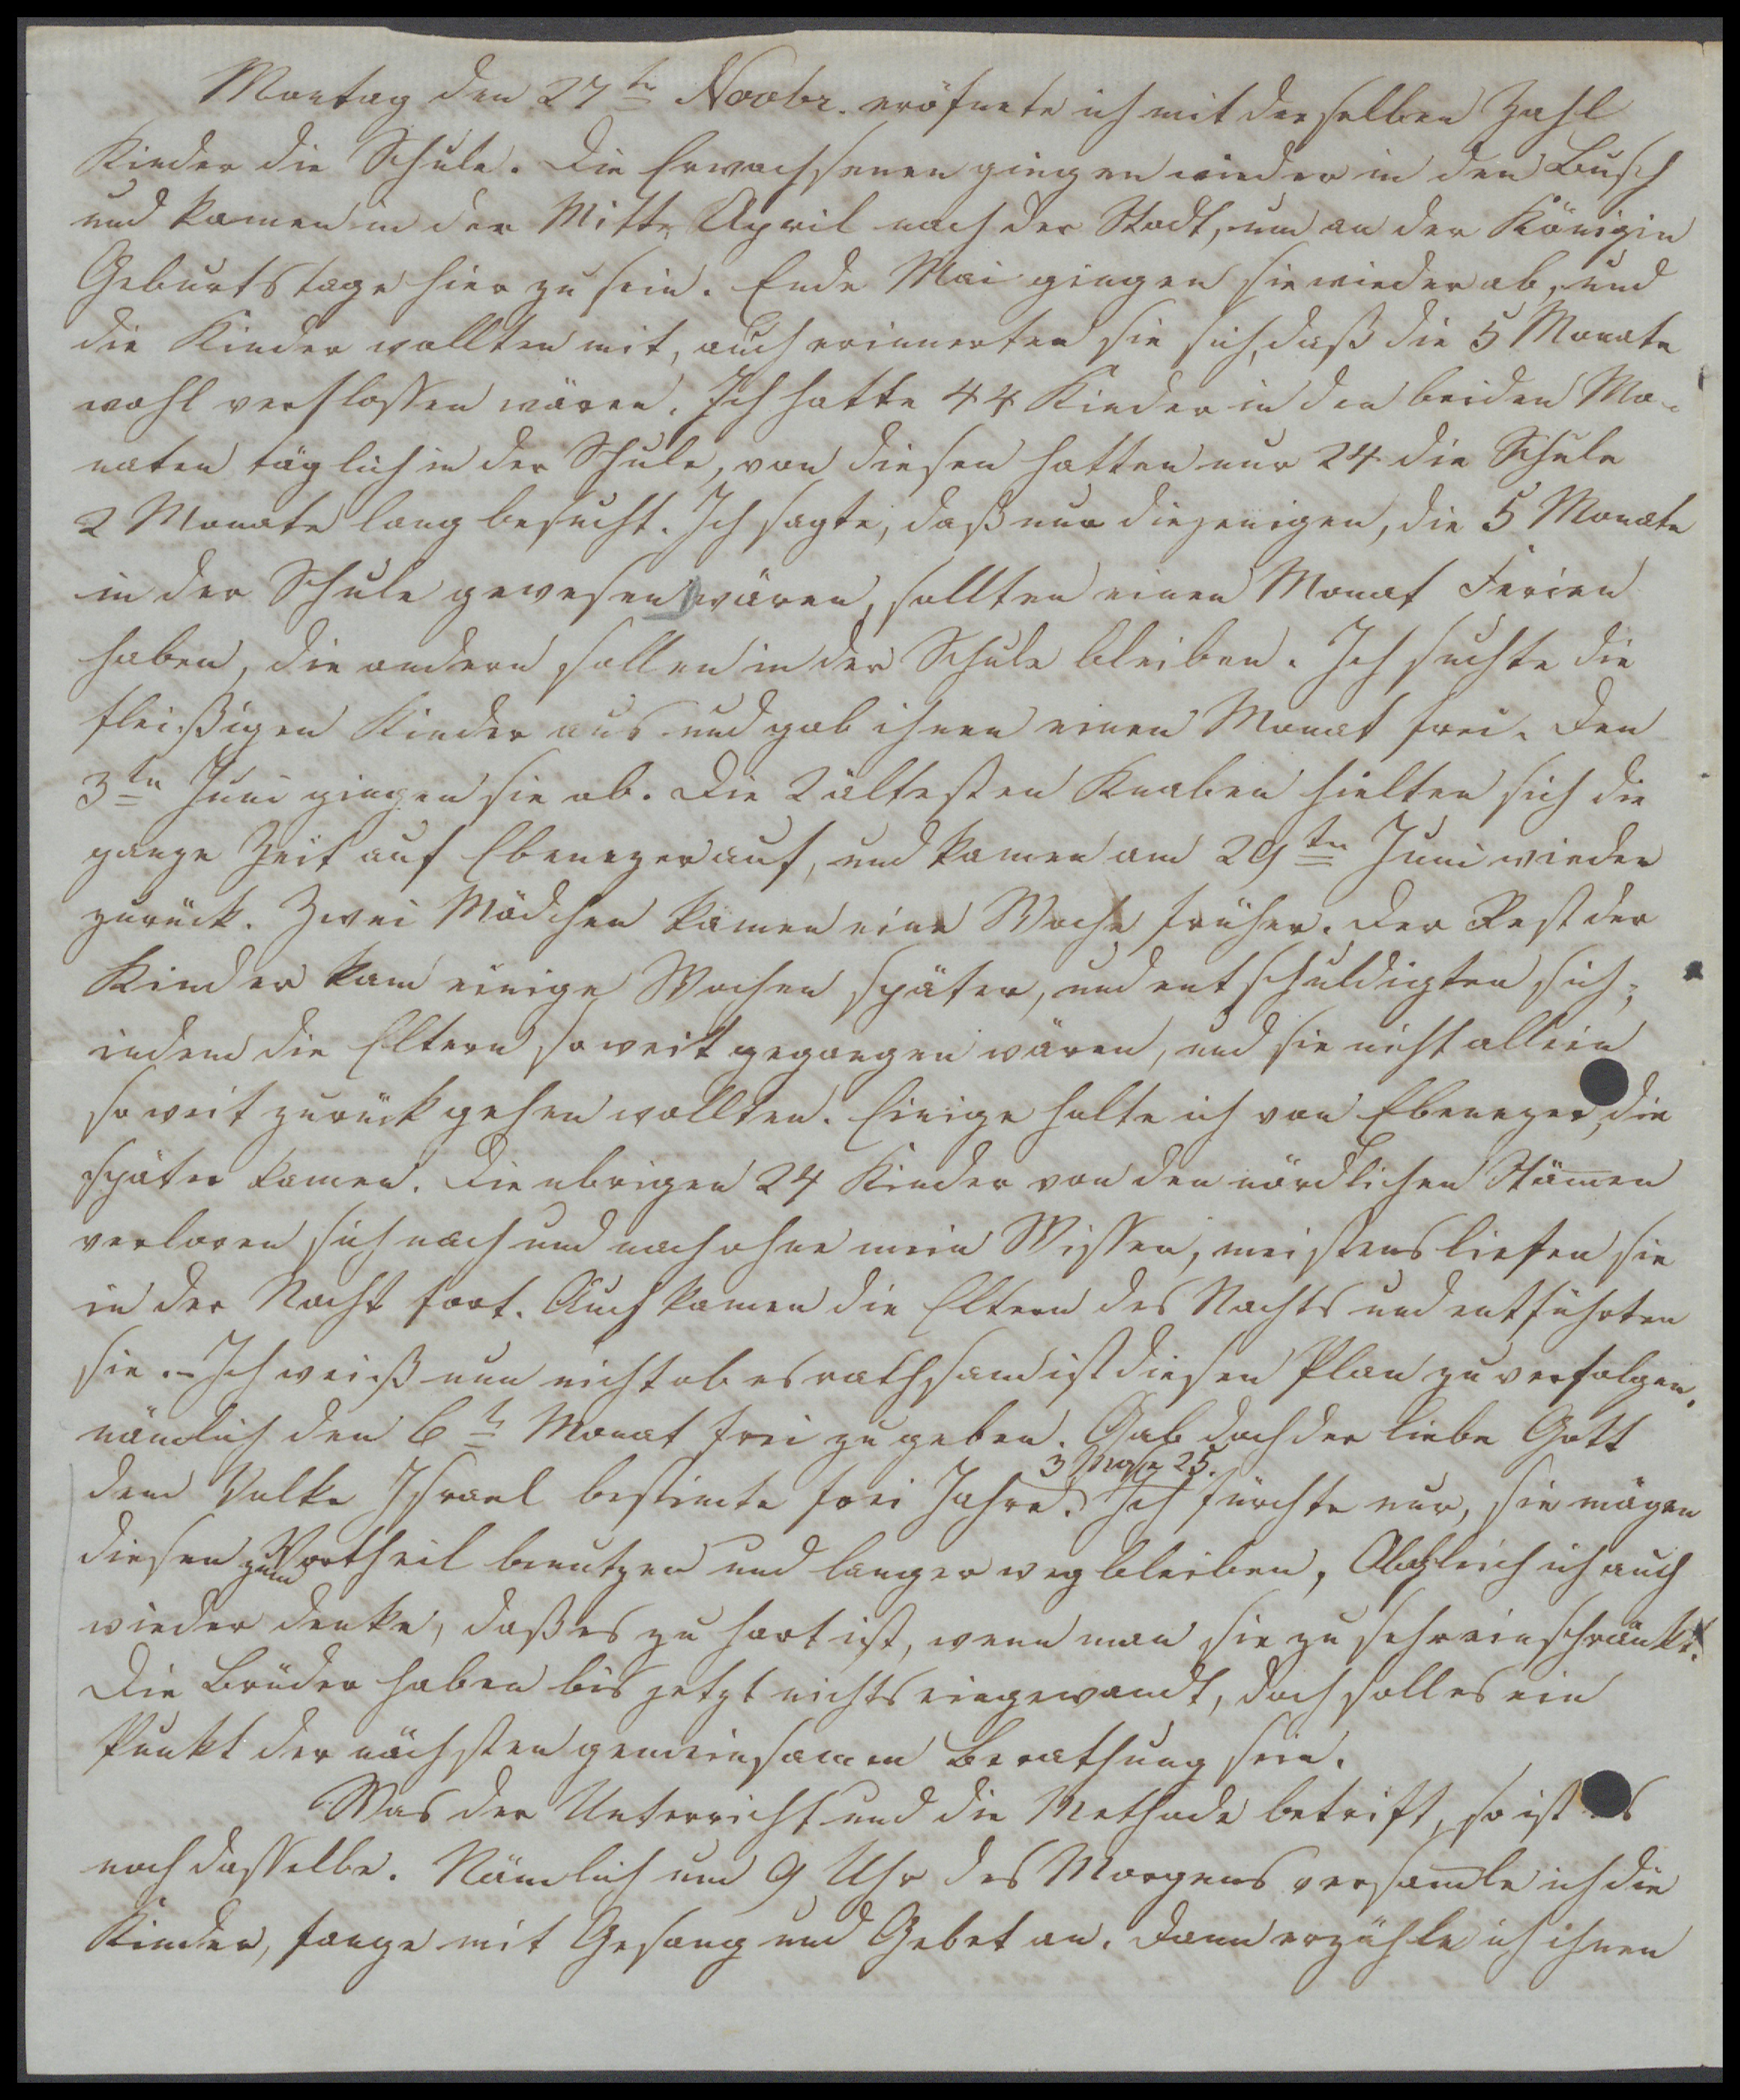 Montag den 27<sup>te</sup> Novbr. eröfnete ich mit derselben Zahl
Kinder die Schule. Die Erwachsenen gingen wieder in den Busch
und kamen in der Mitte April nach der Stadt, um an der Königin
Geburtstage hier zu sein. Ende Mai gingen sie wieder ab, und
die Kinder wollten mit, auch erinnerten sie sich, daß die 5 Monate
wohl verflossen wären. Ich hatte 44 Kinder in den beiden Mo-
naten täglich in der Schule, von diesen hatten nur 24 die Schule
2 Monate lang besucht. Ich sagte, daß nur diejenigen, die 5 Monate
in der Schule gewesen wären, sollten einen Monat Ferien
haben, die andern sollen in der Schule bleiben. Ich suchte die
fleißigen Kinder aus und gab ihnen einen Monat frei. Den
3<sup>ten</sup> Juni gingen sie ab. Die 2 ältesten Knaben hielten sich die
ganze Zeit auf Ebenezer auf, und kamen am 29<sup>ten</sup> Juni wieder
zurück. Zwei Mädchen kamen eine Woche früher. Der Rest der
Kinder kam einige Wochen später, und entschuldigten sich,
indem die Eltern so weit gegangen wären, und sie nicht allein
so weit zurück gehen wollten. Einige holte ich von Ebenezer, die
später kamen. Die übrigen 24 Kinder von den nördlichen Stämen
verloren sich nach und nach ohne mein Wissen, meistens liefen sie
in der Nacht fort. Auch kamen die Eltern des Nachts und entführten
sie. – Ich weiß nun nicht ob es rathsam ist diesen Plan zu verfolgen,
nämlich den 6<sup>te</sup> Monat frei zu geben. Gab doch der liebe Gott
3 Mose 25.
dem Volke Israel bestimte frei Jahre. Ich fürchte nur, sie mögen
diesen zum Vortheil benutzen und langer weg bleiben, Obgleich ich auch
wieder denke, daß es zu hart ist, wenn man sie zu sehr einschränkt.
Die Brüder haben bis jetzt nichts eingewandt, doch soll es ein
Punkt der nächsten gemeinsamen Berathung sein.
Was der Unterricht und die Methode betrift, so ist es
noch dasselbe. Nämlich um 9 Uhr des Morgens versamle ich die
Kinder, fange mit Gesang und Gebet an. Dann erzähle ich ihnen